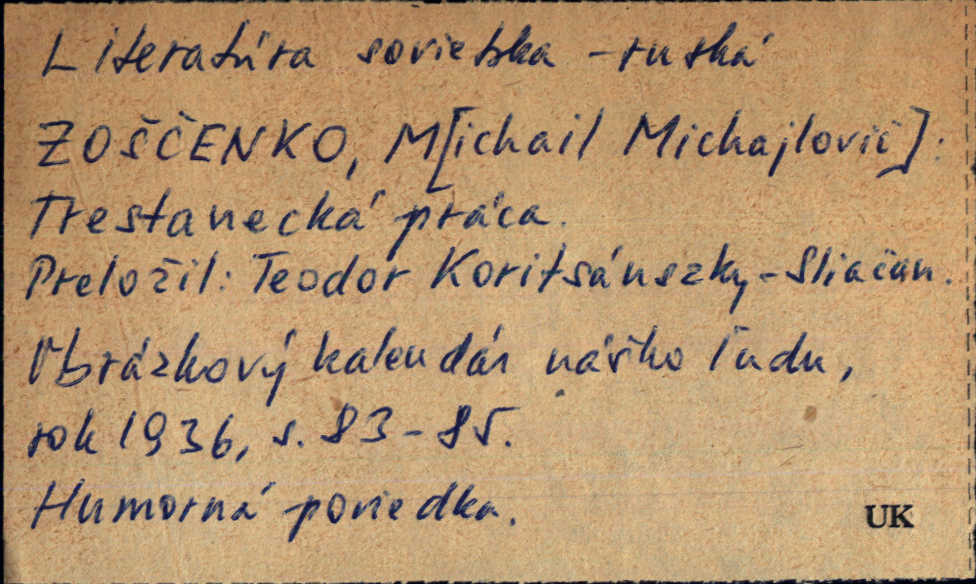 Literatúra sovietska - ruská
ZOŠČENKO, M[ichail Michajlovič]:
Trestanecká práca.
Preložil: Teodor Koritsánszky-Sliačan.
Obrázkový kalendár nášho ľudu,
rok 1936, s. 83-85.
Humorná poviedka.
UK